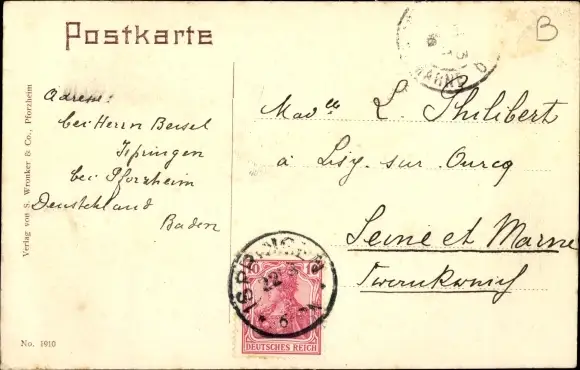 Postkarte
B
MARNE
Adresse:
bei Herrn Beisel
Ispringen
bei Pforzheim
Deutschland
Baden
Mad<sup>elle</sup> L. Philibert
à Lisy-sur Ourcq
Seine et Marne
ISPRINGEN
22
6
10
DEUTSCHES REICH
Verlag von S. Wronker & Co., Pforzheim
No. 1910